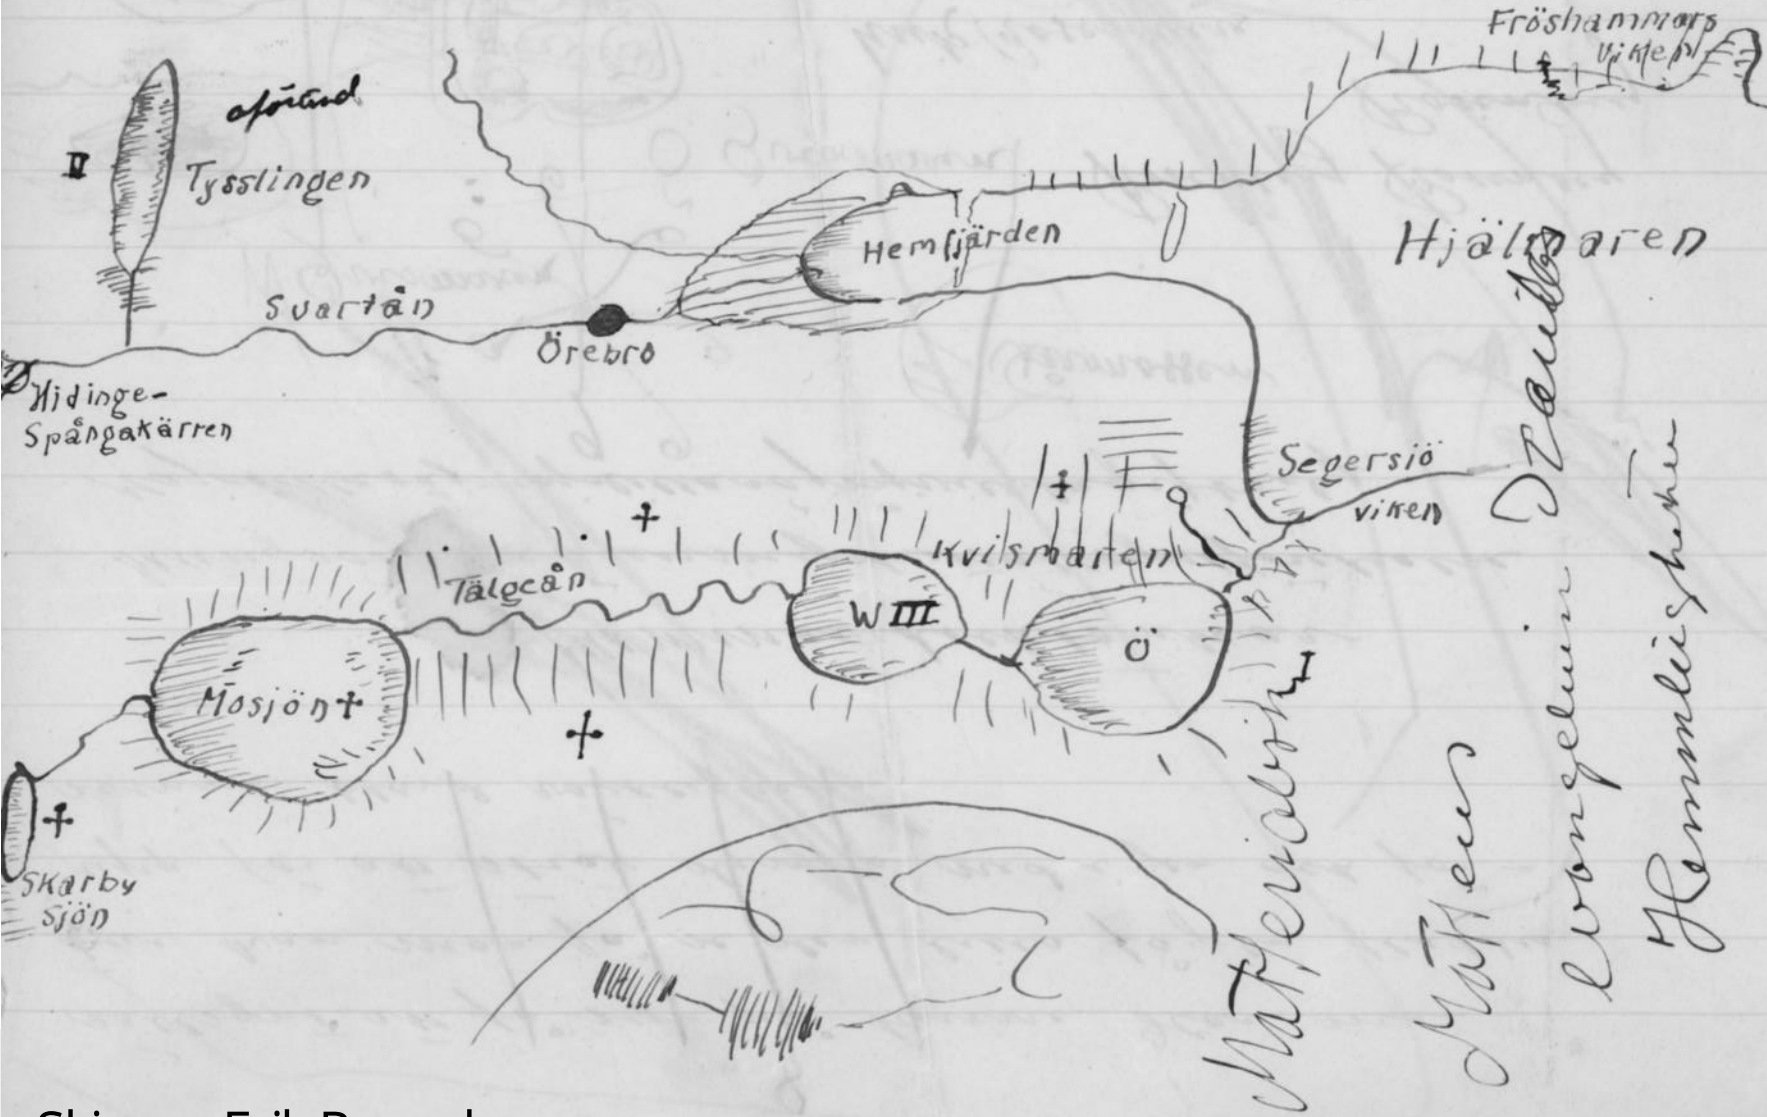 Fröshammars
viken
II
oföränd
Tysslingen
Hemfjärden
Hjälmaren
Svartån
Örebro
Hidinge-
Spångakärren
Segersiö
viken
Kvismaren
Tälgeån
W III
Ö
I
Mosjön
Skarby
sjön
Matteus
evangelium